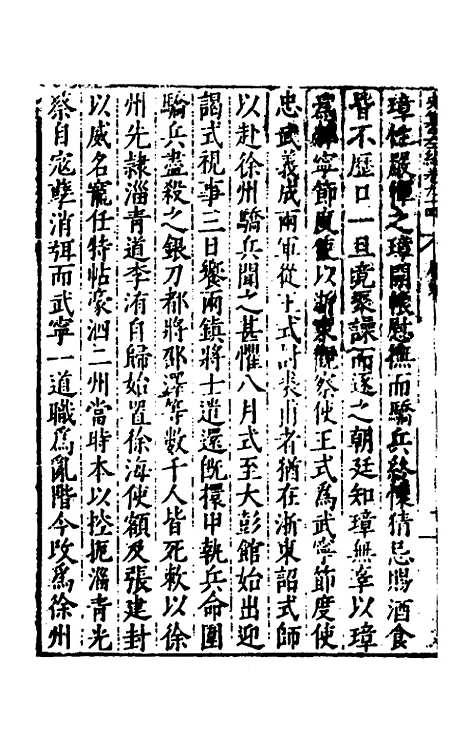 璋性嚴憚之璋開帳慰撫而驕兵終懷猜忌賜酒食
皆不歷口一旦竟聚譟而逐之朝廷知璋無辜以璋
為邠寧節度使以浙東觀察使王式為武寧節度使
忠武義成兩軍從王式討裘甫者猶在浙東詔式帥
以赴徐州驕兵聞之甚懼八月式至大彭館始出迎
謁式視事三日饗兩鎮將士遣還既擐甲執兵命圍
驕兵盡殺之銀刀都將邵澤等數千人皆死敕以徐
州先隸淄青道李洧自歸始置徐海使額及張建封
以威名寵任特帖濠泗二州當時本以控扼淄青光
蔡自寇孽消弭而武寧一道職為亂階今改為徐州